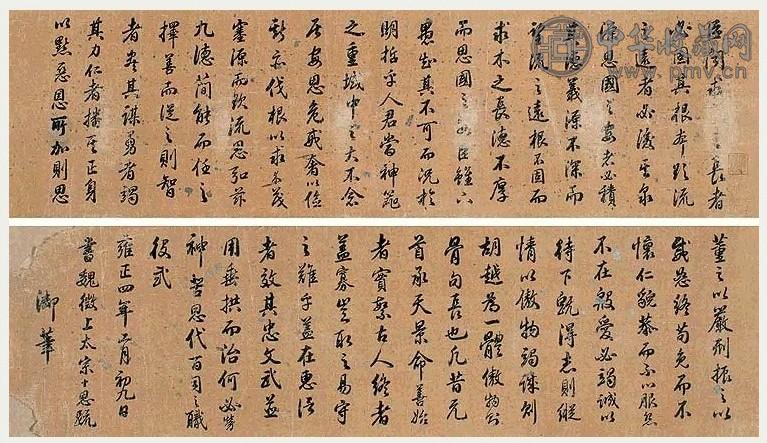 臣聞求之長者
必固其根本欲流
之遠者必浚其泉
源思國之安者必積
其德義源不深而
望流之遠根不固而
求木之長德不厚
而思國之安臣雖下
愚知其不可而況於
明哲乎人君當神器
之重域中之大不念
居安思危戒奢以儉
斯亦伐根以求木茂
塞源而欲流思弘茲
九德簡能而任之
擇善而從之則智
者盡其謀勇者竭
其力仁者播其正身
以黜惡恩所加則思
董之以嚴刑振之以
威怒終苟免而不
懷仁貌恭而不心服怨
不在必竭誠以
待下既得志則縱
情以傲物竭誠則
胡越為一體傲物則
骨肉長也凡昔元
首承天景命善始
者實繁終者
蓋寡豈取之易守
之難乎蓋在
者效其忠文武並
用垂拱而治何必勞
神苦思代百司之職
役哉
雍正四年二月初九日
書魏徵上太宗十思疏
御筆
中华收藏网